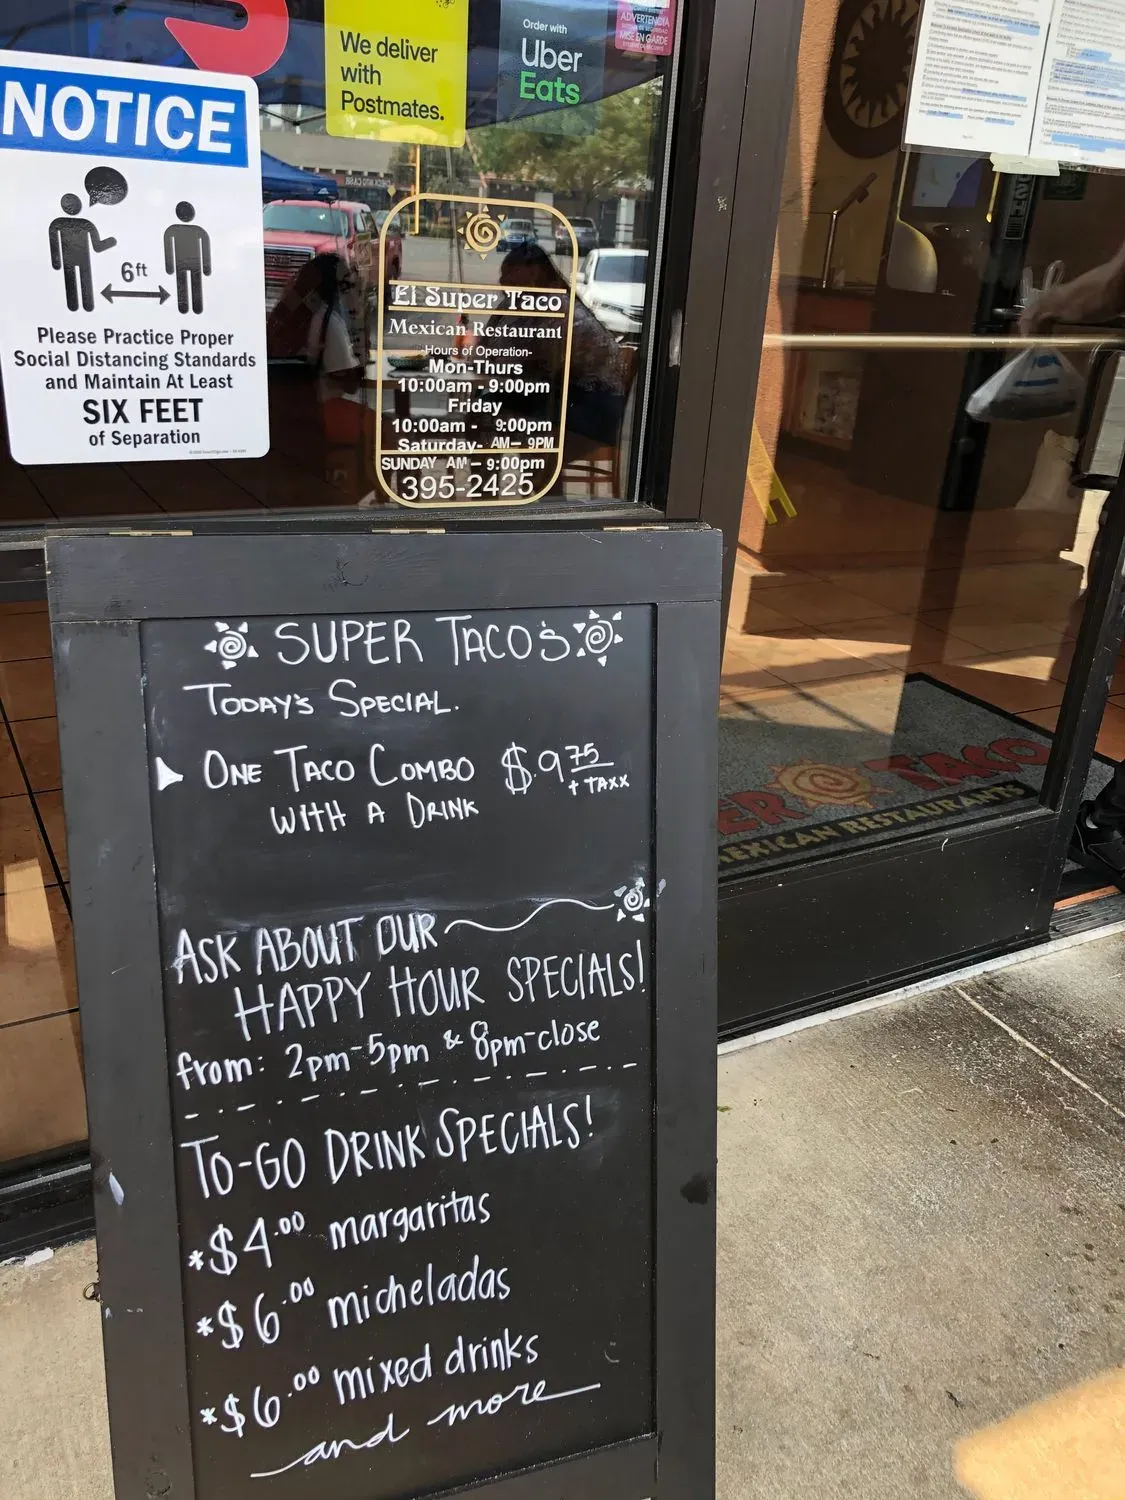 NOTICE
6ft
Please Practice Proper
Social Distancing Standards
and Maintain At Least
SIX FEET
of Separation
We deliver
with
Postmates.
Order with
Uber
Eats
ADVERTENCIA
MISE EN GARDE
El Super Taco
Mexican Restaurant
-Hours of Operation-
Mon-Thurs
10:00am - 9:00pm
Friday
10:00am - 9:00pm
Saturday- AM- 9PM
SUNDAY AM - 9:00pm
395-2425
SUPER TACO'S
TODAY'S SPECIAL.
ONE TACO COMBO $9.75
+ TAXX
WITH A DRINK
ASK ABOUT OUR
HAPPY HOUR SPECIALS!
from: 2pm-5pm & 8pm-close
TO-GO DRINK SPECIALS!
*$4.00 margaritas
*$6.00 micheladas
*$6.00 mixed drinks
and more
ER TACO
MEXICAN RESTAURANTS